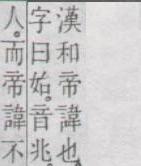 漢和帝諱也
字曰始。音兆。
人。而帝諱不